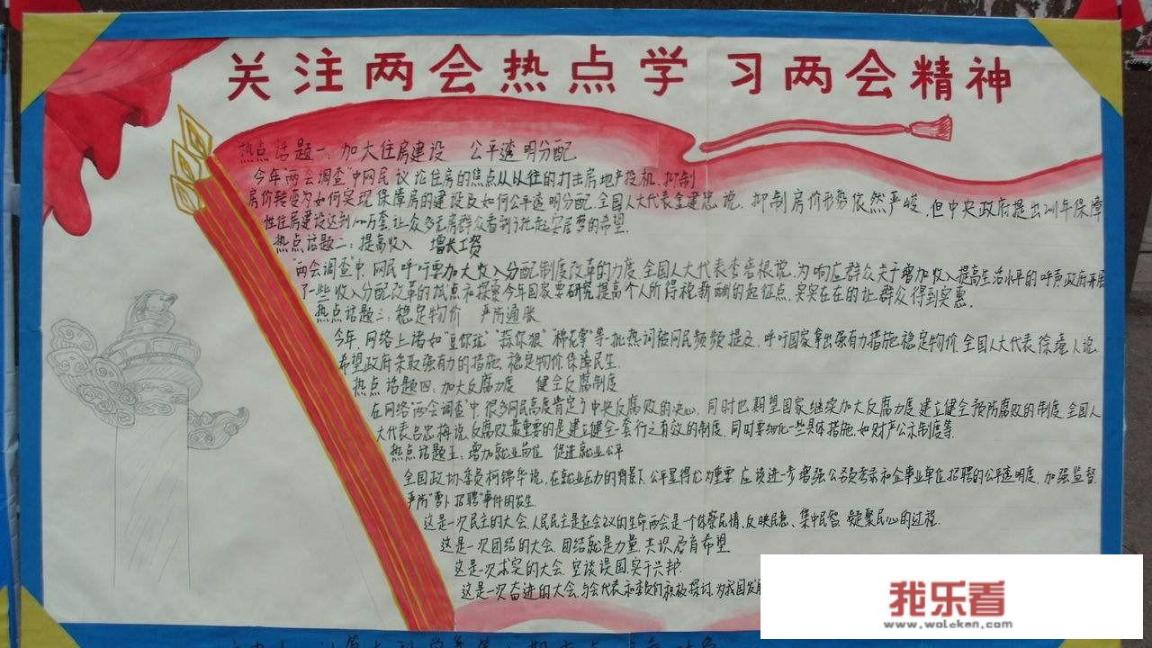 关注两会热点学 习两会精神
热点话题一:加大住房建设 公平透明分配
今年"两会调查"中网民议论住房的焦点从以往的打击房地产投机、抑制
房价转变为如何实现保障房的建设及如何公平透明分配.全国人大代表 建忠说,抑制房价形势依然严峻,但中央政府提出2011年保障
性住房建设达到1000万套,让众多无房群众看到了托起安居梦的希望.
热点话题二:提高收入 增长工资
"两会调查"中,网民呼吁要加大收入分配制度改革的力度.全国人大代表李 根说,为响应群众关于增加收入提高生活水平的呼声政府开展
了一些收入分配改革的试点和探索今年国家要研究提高个人所得税薪酬的起征点,实实在在的让群众得到实惠.
热点话题三:稳定物价 严防通胀
今年,网络上诸如"豆你玩""蒜你狠""棉花掌"等一批热词被网民频频提及,呼吁国家拿出强有力措施稳定物价.全国人大代表徐 人说,
希望政府采取强有力的措施,稳定物价保障民生.
热点话题四:加大反腐力度 健全反腐制度
在网络"两会调查"中,很多网民高度肯定了中央反腐败的决心,同时也期望国家继续加大反腐力度,建立健全预防腐败的制度.全国人
大代表吕忠梅说,反腐败最重要的是建立健全一套行之有效的制度,同时要细化一些具体措施,如财产公示制度等.
热点话题五:增加就业岗位 促进就业公平
全国政协委员柯锦华说,在就业压力的背景下,公平显得尤为重要,应该进一步增强公务员考录和企事业单位招聘的公平透明度,加强监督
严防"萝卜招聘"事件的发生.
这是一次民主的大会,人民民主是在会议的生命两会是一个体察民情、反映民意、集中民智、凝聚民心的过程.
这是一次团结的大会.团结就是力量,共识孕育希望
这是一次求实的大会.空谈误国,实干兴邦.
这是一次奋进的大会.与会代表和委员们积极探讨,为我国发展
我乐看
www.woleken.com